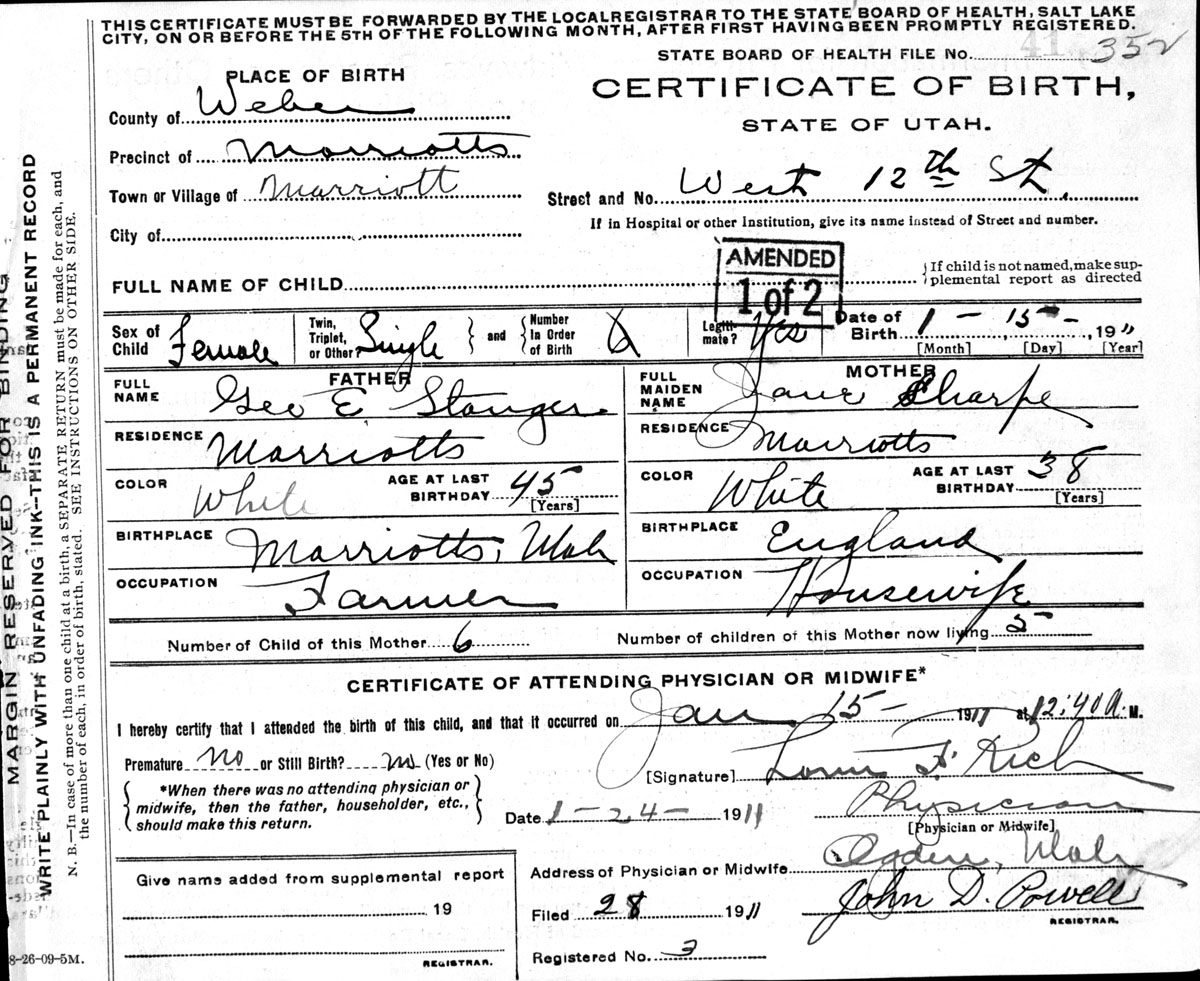 THIS CERTIFICATE MUST BE FORWARDED BY THE LOCAL REGISTRAR TO THE STATE BOARD OF HEALTH, SALT LAKE
CITY, ON OR BEFORE THE 5TH OF THE FOLLOWING MONTH, AFTER FIRST HAVING BEEN PROMPTLY REGISTERED.
STATE BOARD OF HEALTH FILE No. 352
PLACE OF BIRTH
CERTIFICATE OF BIRTH,
STATE OF UTAH.
County of Weber
Precinct of Marriotts
Town or Village of Marriott
Street and No. West 12th St.
If in Hospital or other Institution, give its name instead of Street and number.
City of
AMENDED
1 of 2
FULL NAME OF CHILD
If child is not named, make sup-
plemental report as directed
Sex of Child Female
Twin, Triplet, or Other? Single and Number In Order of Birth 6
Legiti-mate? Yes
Date of Birth 1 - 15 -, 1911
[Month] [Day] [Year]
FATHER
MOTHER
FULL NAME Geo E Stanger
FULL MAIDEN NAME Jane Sharpe
RESIDENCE Marriotts
RESIDENCE Marriotts
COLOR White AGE AT LAST BIRTHDAY 45 [Years]
COLOR White AGE AT LAST BIRTHDAY 38 [Years]
BIRTHPLACE Marriotts, Utah
BIRTHPLACE England
OCCUPATION Farmer
OCCUPATION Housewife
Number of Child of this Mother 6 Number of children of this Mother now living 5
CERTIFICATE OF ATTENDING PHYSICIAN OR MIDWIFE*
I hereby certify that I attended the birth of this child, and that it occurred on Jan 15 - 1911 at 12:40 A. M.
Premature No or Still Birth? no (Yes or No)
[Signature] F. Rich
*When there was no attending physician or
midwife, then the father, householder, etc.,
should make this return.
Date 1 - 24 - 1911
Physician
[Physician or Midwife]
Address of Physician or Midwife Ogden, Utah
Give name added from supplemental report
19
REGISTRAR.
Filed 28 1911 John D. Powell
REGISTRAR.
Registered No. 3
8-26-09-5M.
MARGIN RESERVED FOR BINDING
WRITE PLAINLY WITH UNFADING INK--THIS IS A PERMANENT RECORD
N. B.—In case of more than one child at a birth, a SEPARATE RETURN must be made for each, and
the number of each, in order of birth, stated. SEE INSTRUCTIONS ON OTHER SIDE.